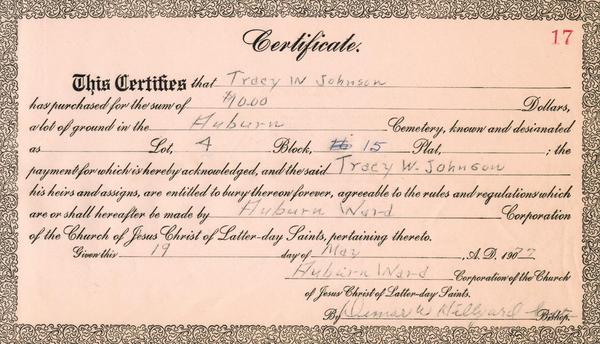 17
Certificate.
This Certifies that Tracy W Johnson
has purchased for the sum of $10.00 Dollars,
a lot of ground in the Auburn Cemetery, known and desianated
as Lot, 4 Block, 15 Plat, ; the
payment for which is hereby acknowledged, and the said Tracy W. Johnson
his heirs and assigns, are entitled to bury thereon forever, agreeable to the rules and regulations which
are or shall hereafter be made by Auburn Ward Corporation
of the Church of Jesus Christ of Latter-day Saints, pertaining thereto.
Given this 19 day of May A.D. 1977
Auburn Ward Corporation of the Church
of Jesus Christ of Latter-day Saints.
By Hillyard Bishop.